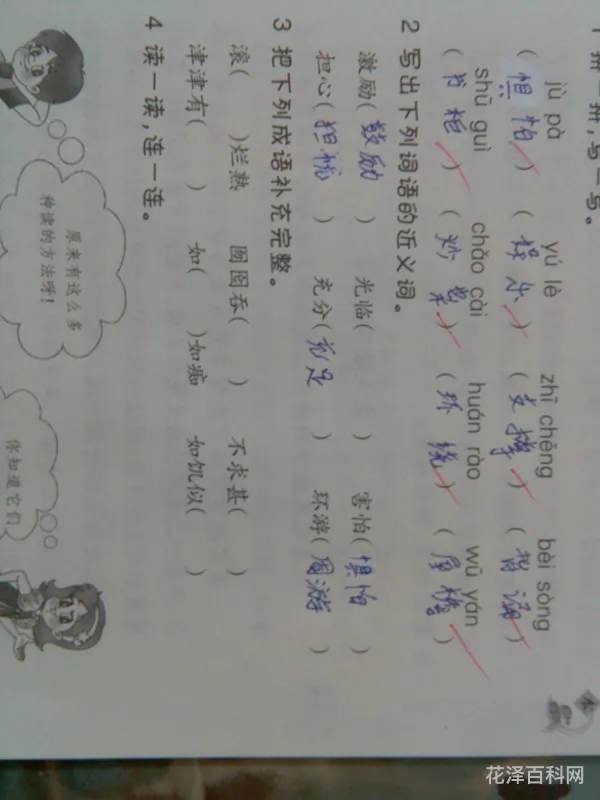 1 拼一拼,写一写。
jù pà yú lè zhī chēng bèi sòng
(惧怕) (娱乐) (支撑) (背诵)
shū guì chǎo cài huán rào wū yán
(书柜) (炒菜) (环绕) (屋檐)
2 写出下列词语的近义词。
激励(鼓励) 光临( ) 害怕(惧怕)
担心(担忧) 充分(充足) 环游(周游)
3 把下列成语补充完整。
滚( )烂熟 囫囵吞( ) 不求甚( )
津津有( ) 如( )如痴 如饥似( )
4 读一读,连一连。
原来有这么多
种读的方法呀!
你知道它们
花泽百科网